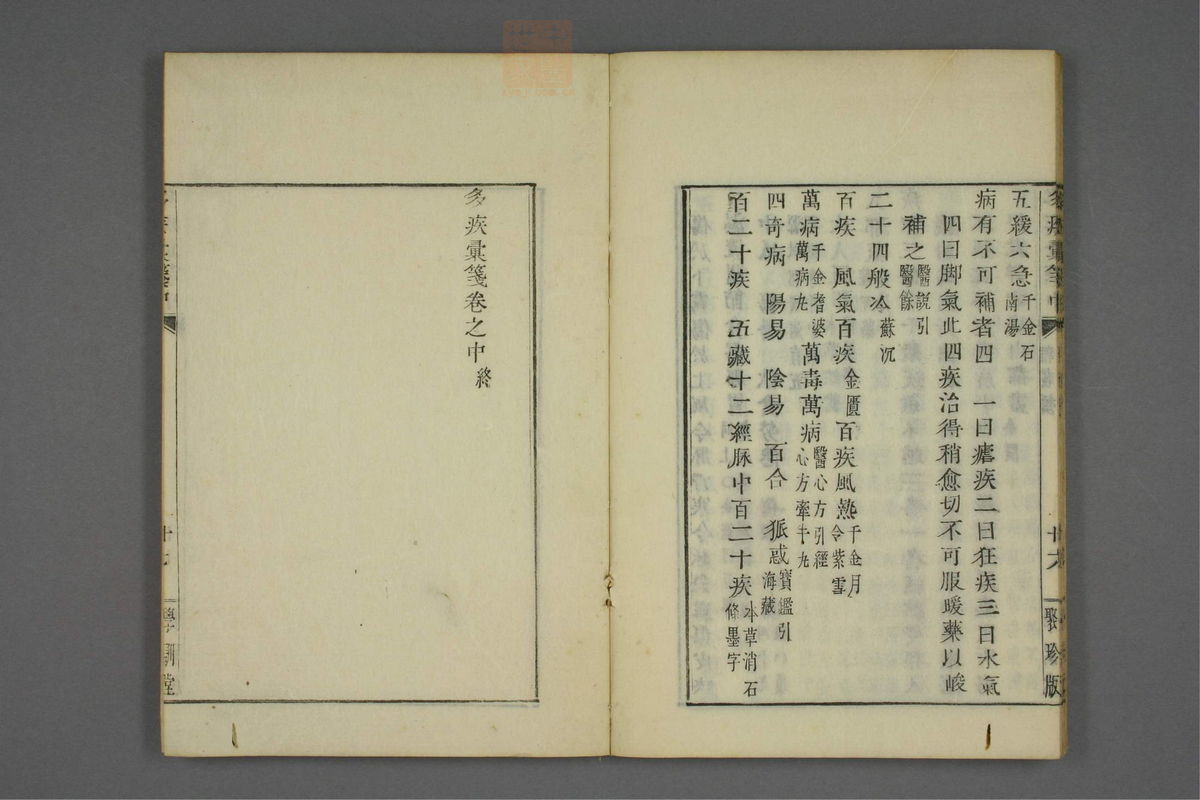 五緩六急千金石南湯
病有不可補者四 一曰瘧疾二曰狂疾三曰水氣
四曰脚氣此四疾治得稍愈切不可服暖藥以峻
補之醫說引醫餘
二十四般冷蘇沉
百疾 風氣百疾金匱百疾風熱千金月令紫雪
萬病千金耆婆萬病丸萬毒萬病醫心方引經心方牽牛丸
四奇病 陽易 陰易 百合 狐惑寶鑑引海藏
百二十疾 五藏十二經脉中百二十疾本草消石條墨字
多疾彙箋中
十九
聚珍版
多疾彙箋卷之中終
學訓堂